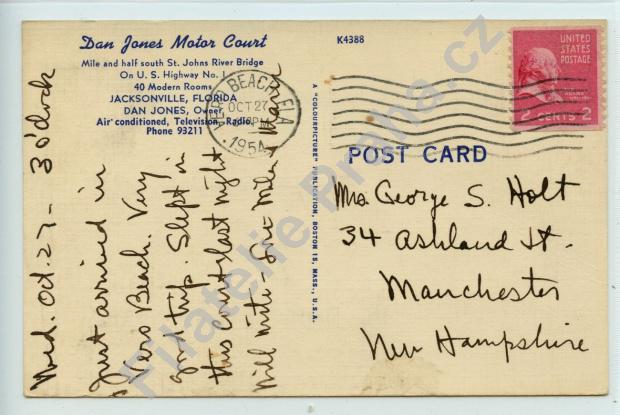 Dan Jones Motor Court
Mile and half south St. Johns River Bridge
On U. S. Highway No. 1
40 Modern Rooms
JACKSONVILLE, FLORIDA
DAN JONES, Owner
Air conditioned, Television, Radio
Phone 93211
K4388
VERO BEACH, FLA
OCT 27
PM
1954
UNITED
STATES
POSTAGE
2 CENTS 2
A "COLOURPICTURE" PUBLICATION, BOSTON 15, MASS., U.S.A.
POST CARD
Wed. Oct. 27 - 3 o'clock
Just arrived in
Vero Beach. Very
good trip. Slept in
this court last night
Will write - Love Mike &
Mrs. George S. Holt
34 Ashland St.
Manchester
New Hampshire
Filatelie Praha.cz